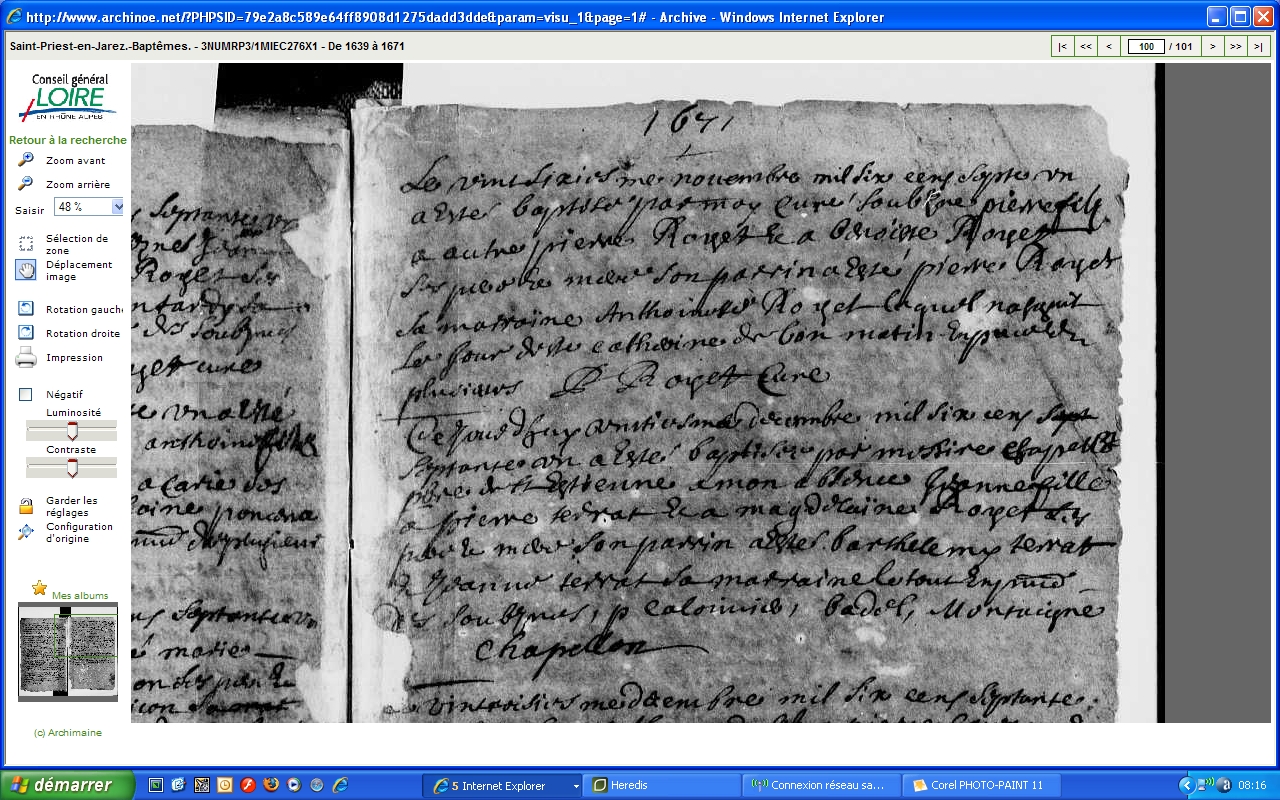 http://www.archinoe.net/?PHPSID=79e2a8c589e64ff8908d1275dadd3dde&param=visu_1&page=1# - Archive - Windows Internet Explorer
Saint-Priest-en-Jarez.-Baptêmes. - 3NUMRP3/1MIEC276X1 - De 1639 à 1671
|< << < 100 / 101 > >> >|
Conseil général
LOIRE
EN RHÔNE ALPES
Retour à la recherche
Zoom avant
Zoom arrière
Saisir 48 %
Sélection de
zone
Déplacement
image
Rotation gauche
Rotation droite
Impression
Négatif
Luminosité
Contraste
Garder les
réglages
Configuration
d'origine
Mes albums
(c) Archimaine
septante un
Royet
des soubznes
cure
anthoine
a Carie des
1671
Le vintsixiesme novembre mil six cens septe un
a esté baptisé par moy curé soubzne pierre filz
a autre pierre Royet & a Benoiste Royet
ses pere & mere son parrin a esté pierre Royet
sa marraine Anthoinete Royet lequel nasquit
le jour de Ste catherine de bon matin En pnce de
plusieurs P Royet Curé
Ce jourdhuy vnitiesme decembre mil six cens sept
septante un a esté baptisée par messire chapellon
pbre de St Estienne a mon absence Jeanne fille
a pierre terrat & a magdelaine Royet ses
pere & mere son parrin a estés barthelemy terrat
& Jeanne terrat sa marraine le tout En pnce
des soubznes, p badel, Montaigne
Chapellon
vintroisiesme decembre mil six cens septante
démarrer
5 Internet Explorer
Heredis
Connexion réseau sa...
Corel PHOTO-PAINT 11
08:16